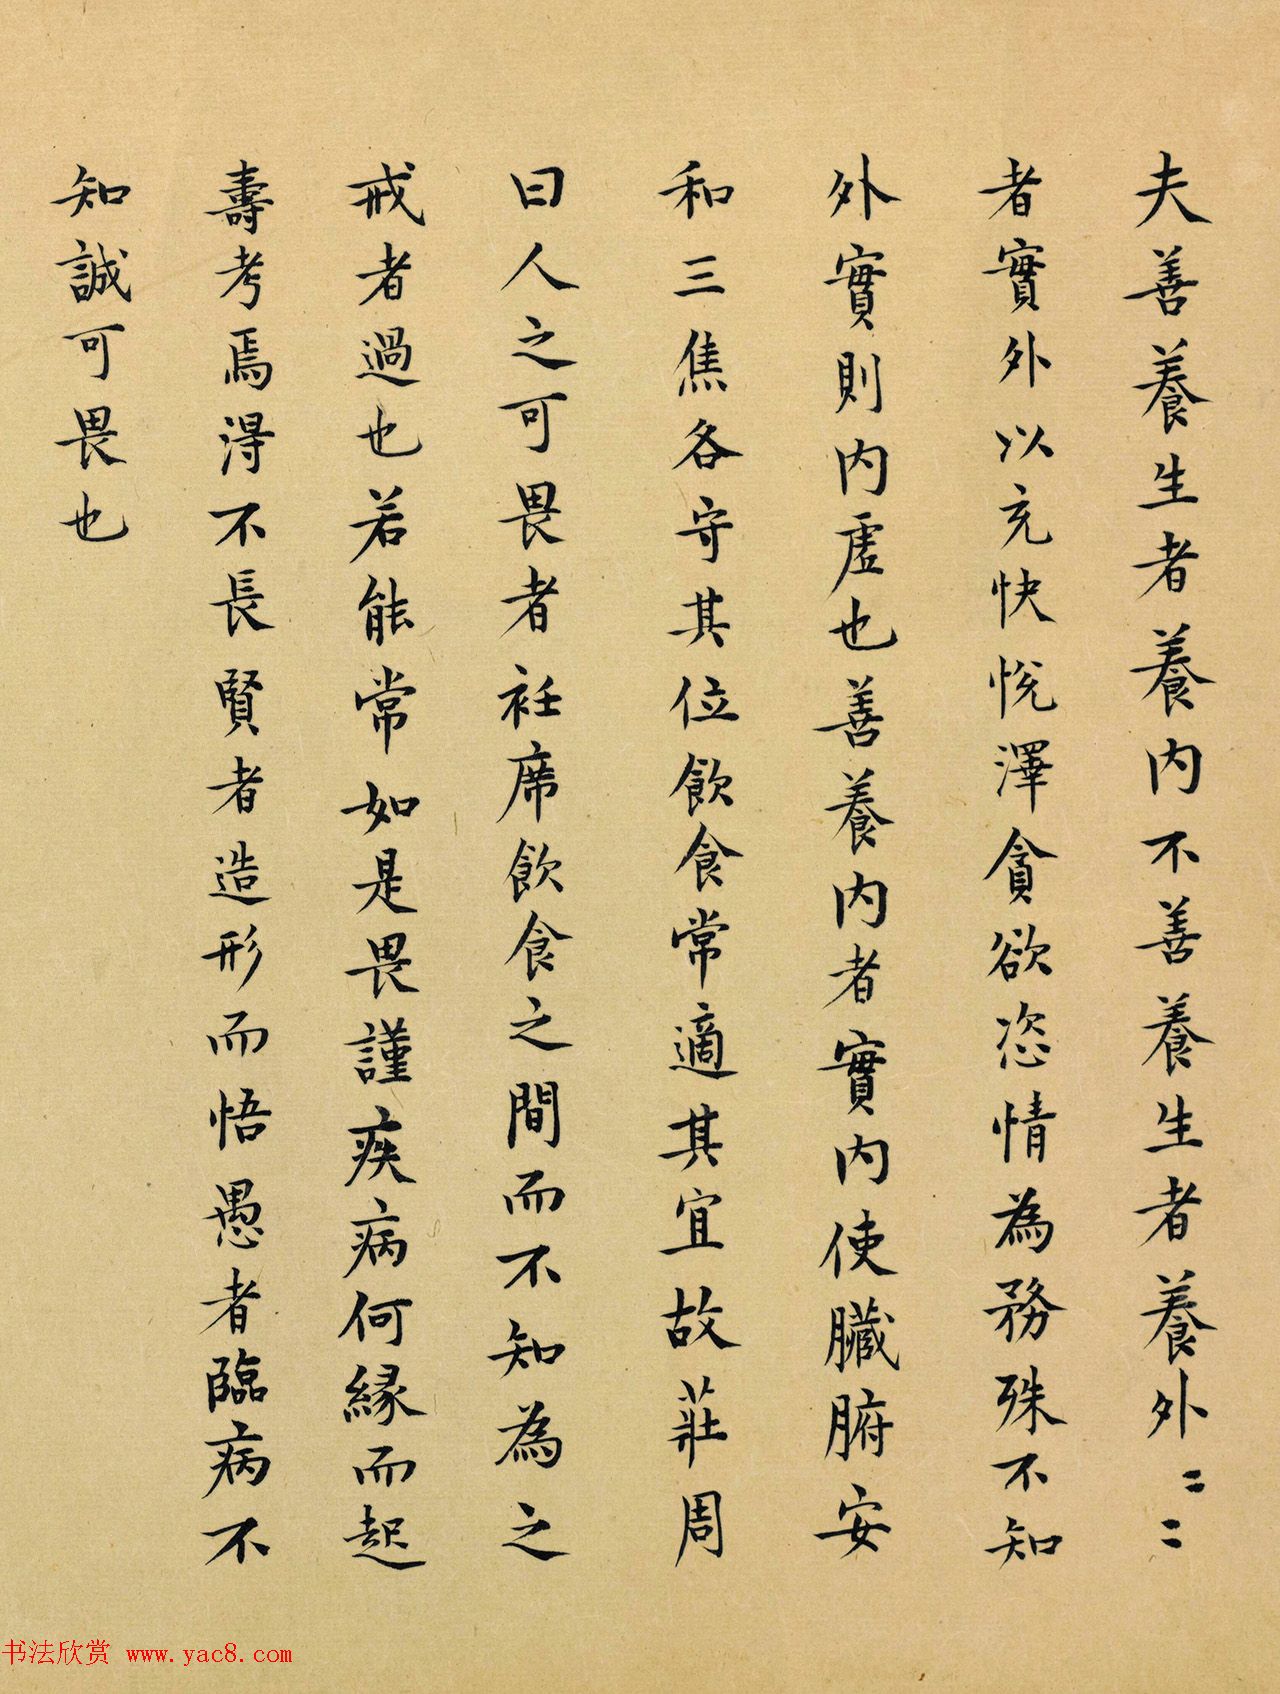 夫善養生者養內不善養生者養外〻〻
者實外以充快悅澤貪欲恣情為務殊不知
外實則內虛也善養內者實內使臟腑安
和三焦各守其位飲食常適其宜故莊周
曰人之可畏者衽席飲食之間而不知為之
戒者過也若能常如是畏謹疾病何緣而起
壽考焉得不長賢者造形而悟愚者臨病不
知誠可畏也
书法欣赏 www.yac8.com